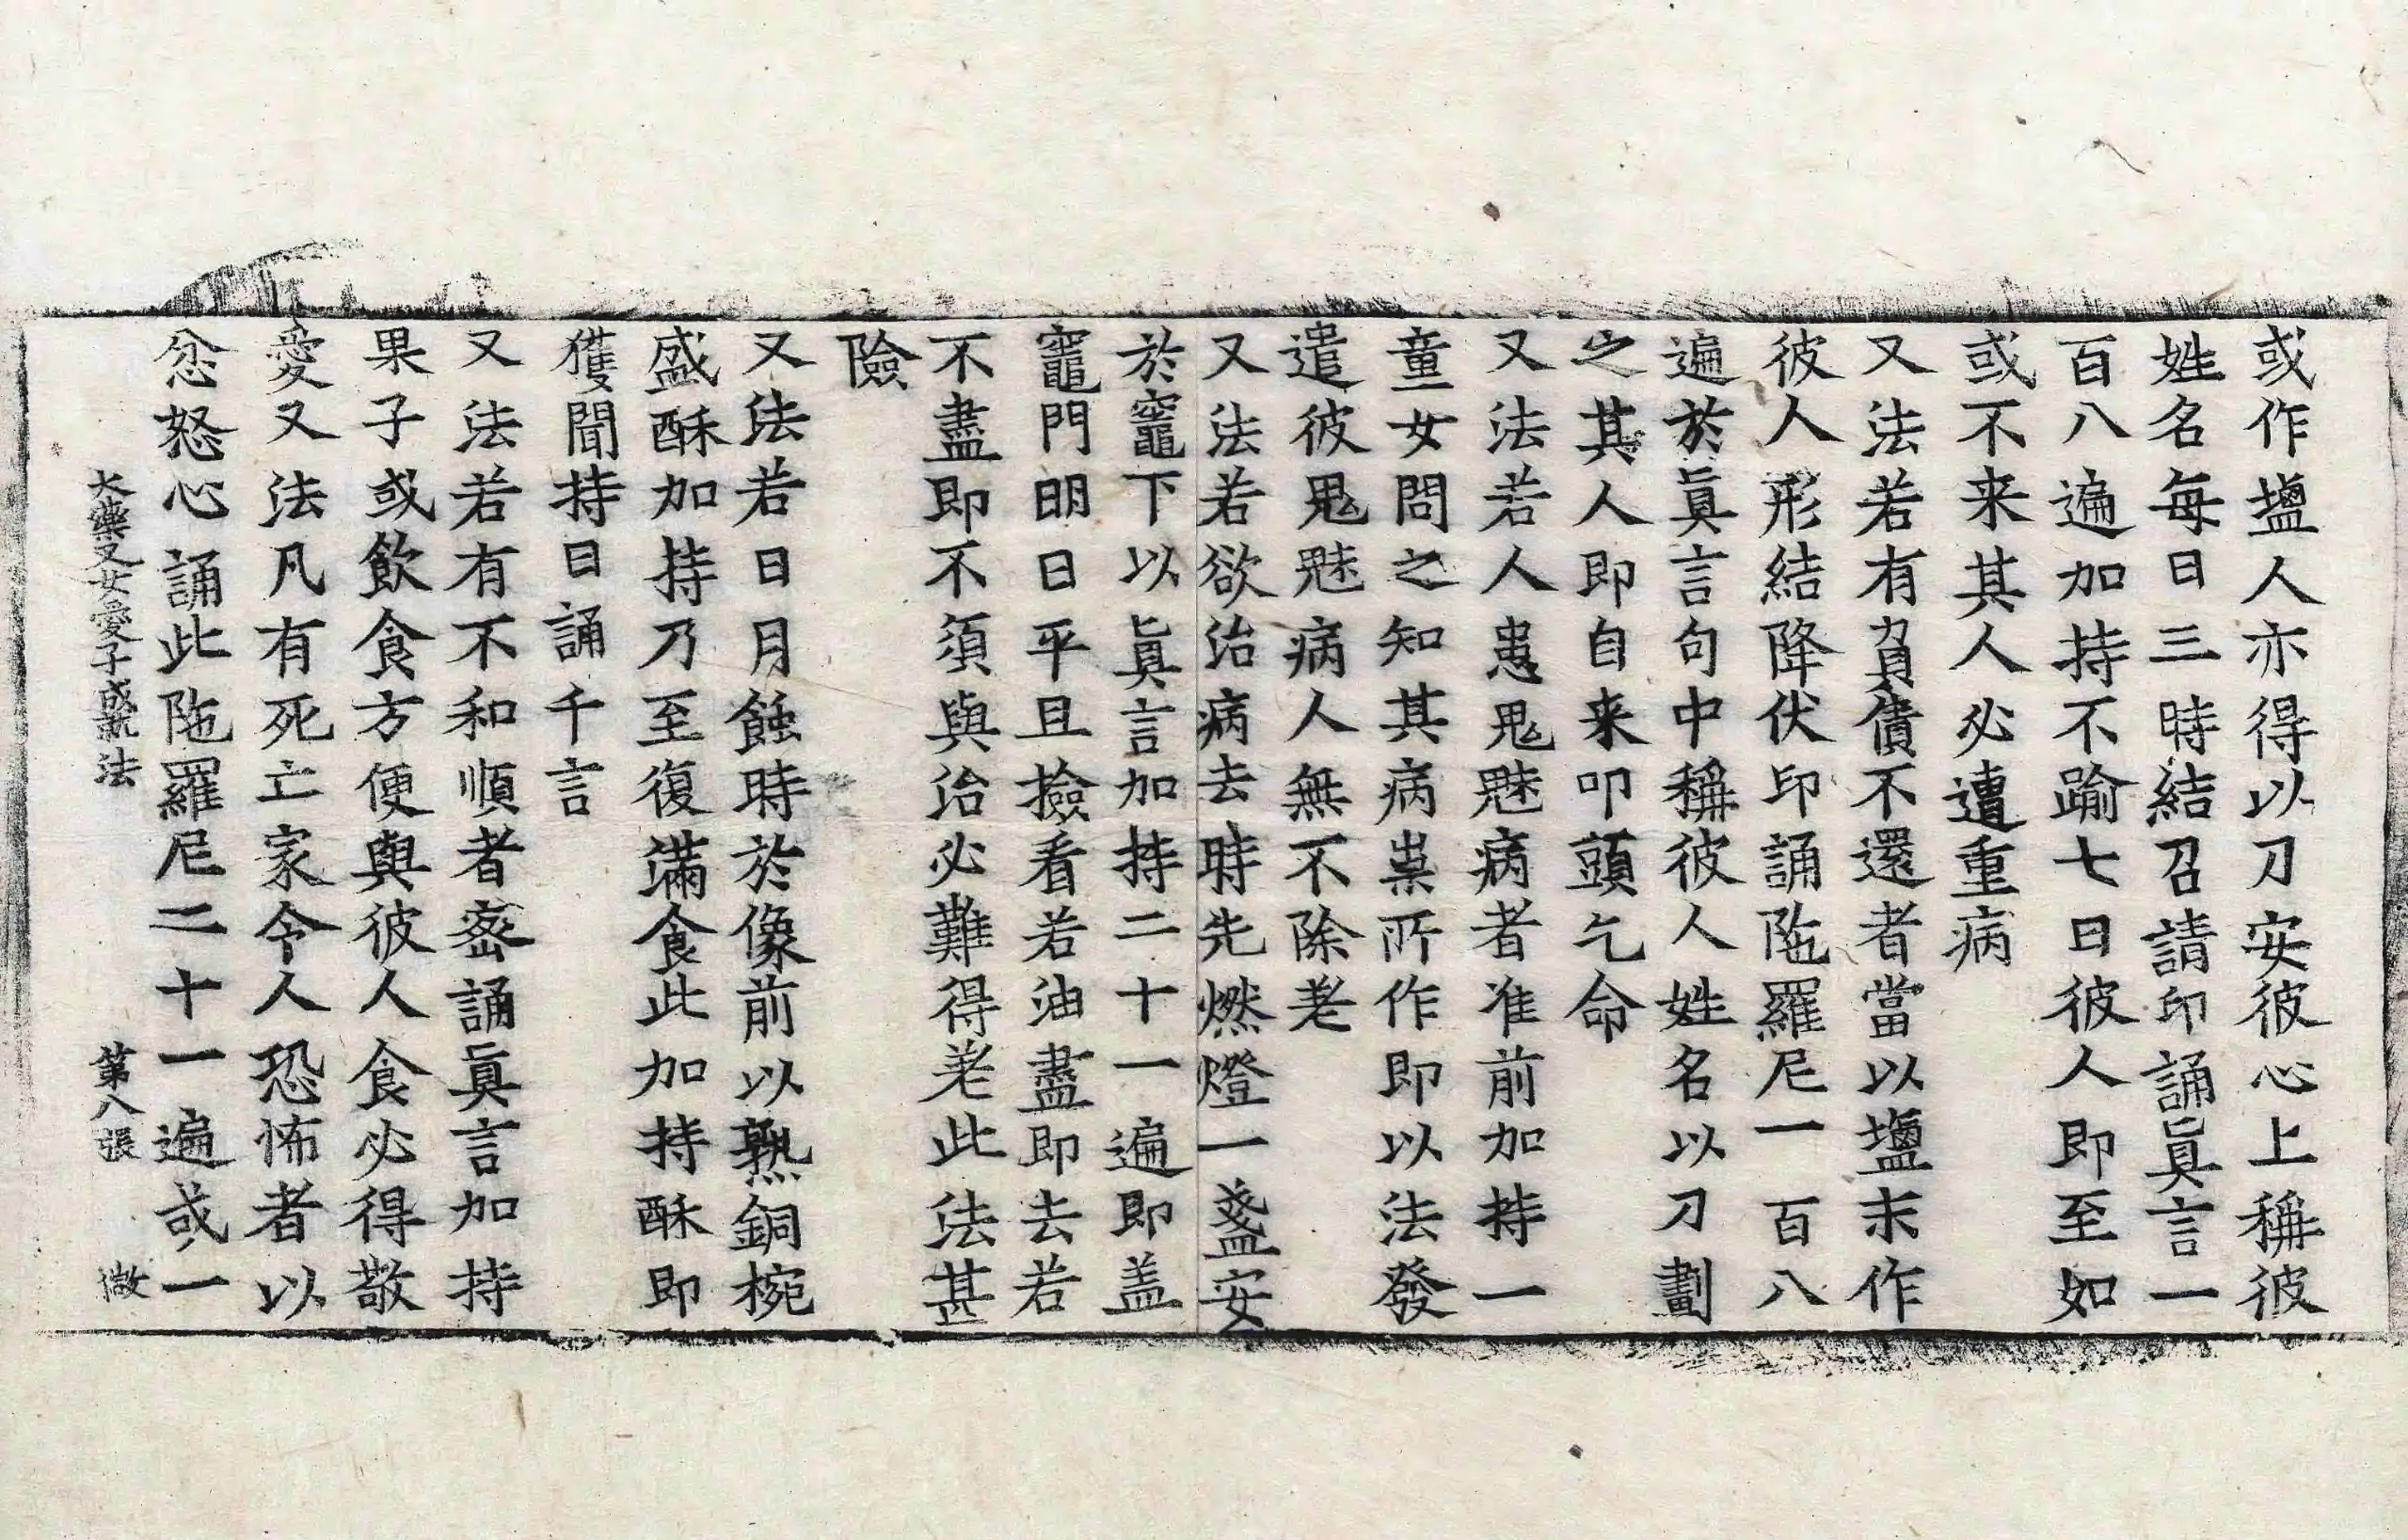 或作塩人亦得以刀安彼心上稱彼
姓名每日三時結召請印誦眞言一
百八遍加持不踰七日彼人即至如
或不来其人必遭重病
又法若有負債不還者當以塩末作
彼人形結降伏印誦陁羅尼一百八
遍於眞言句中稱彼人姓名以刀劃
之其人即自来叩頭乞命
又法若人患鬼魅病者准前加持一
童女問之知其病祟所作即以法發
遣彼鬼魅病人無不除差
又法若欲治病去時先燃燈一盞安
於竈下以眞言加持二十一遍即盖
竈門明日平旦撿看若油盡即去若
不盡即不須與治必難得差此法甚
險
又法若日月蝕時於像前以熟銅椀
盛酥加持乃至復滿食此加持酥即
獲聞持日誦千言
又法若有不和順者密誦眞言加持
果子或飲食方便與彼人食必得敬
愛又法凡有死亡家令人恐怖者以
忿怒心誦此陁羅尼二十一遍或一
大藥叉女愛子成就法　第八張　微